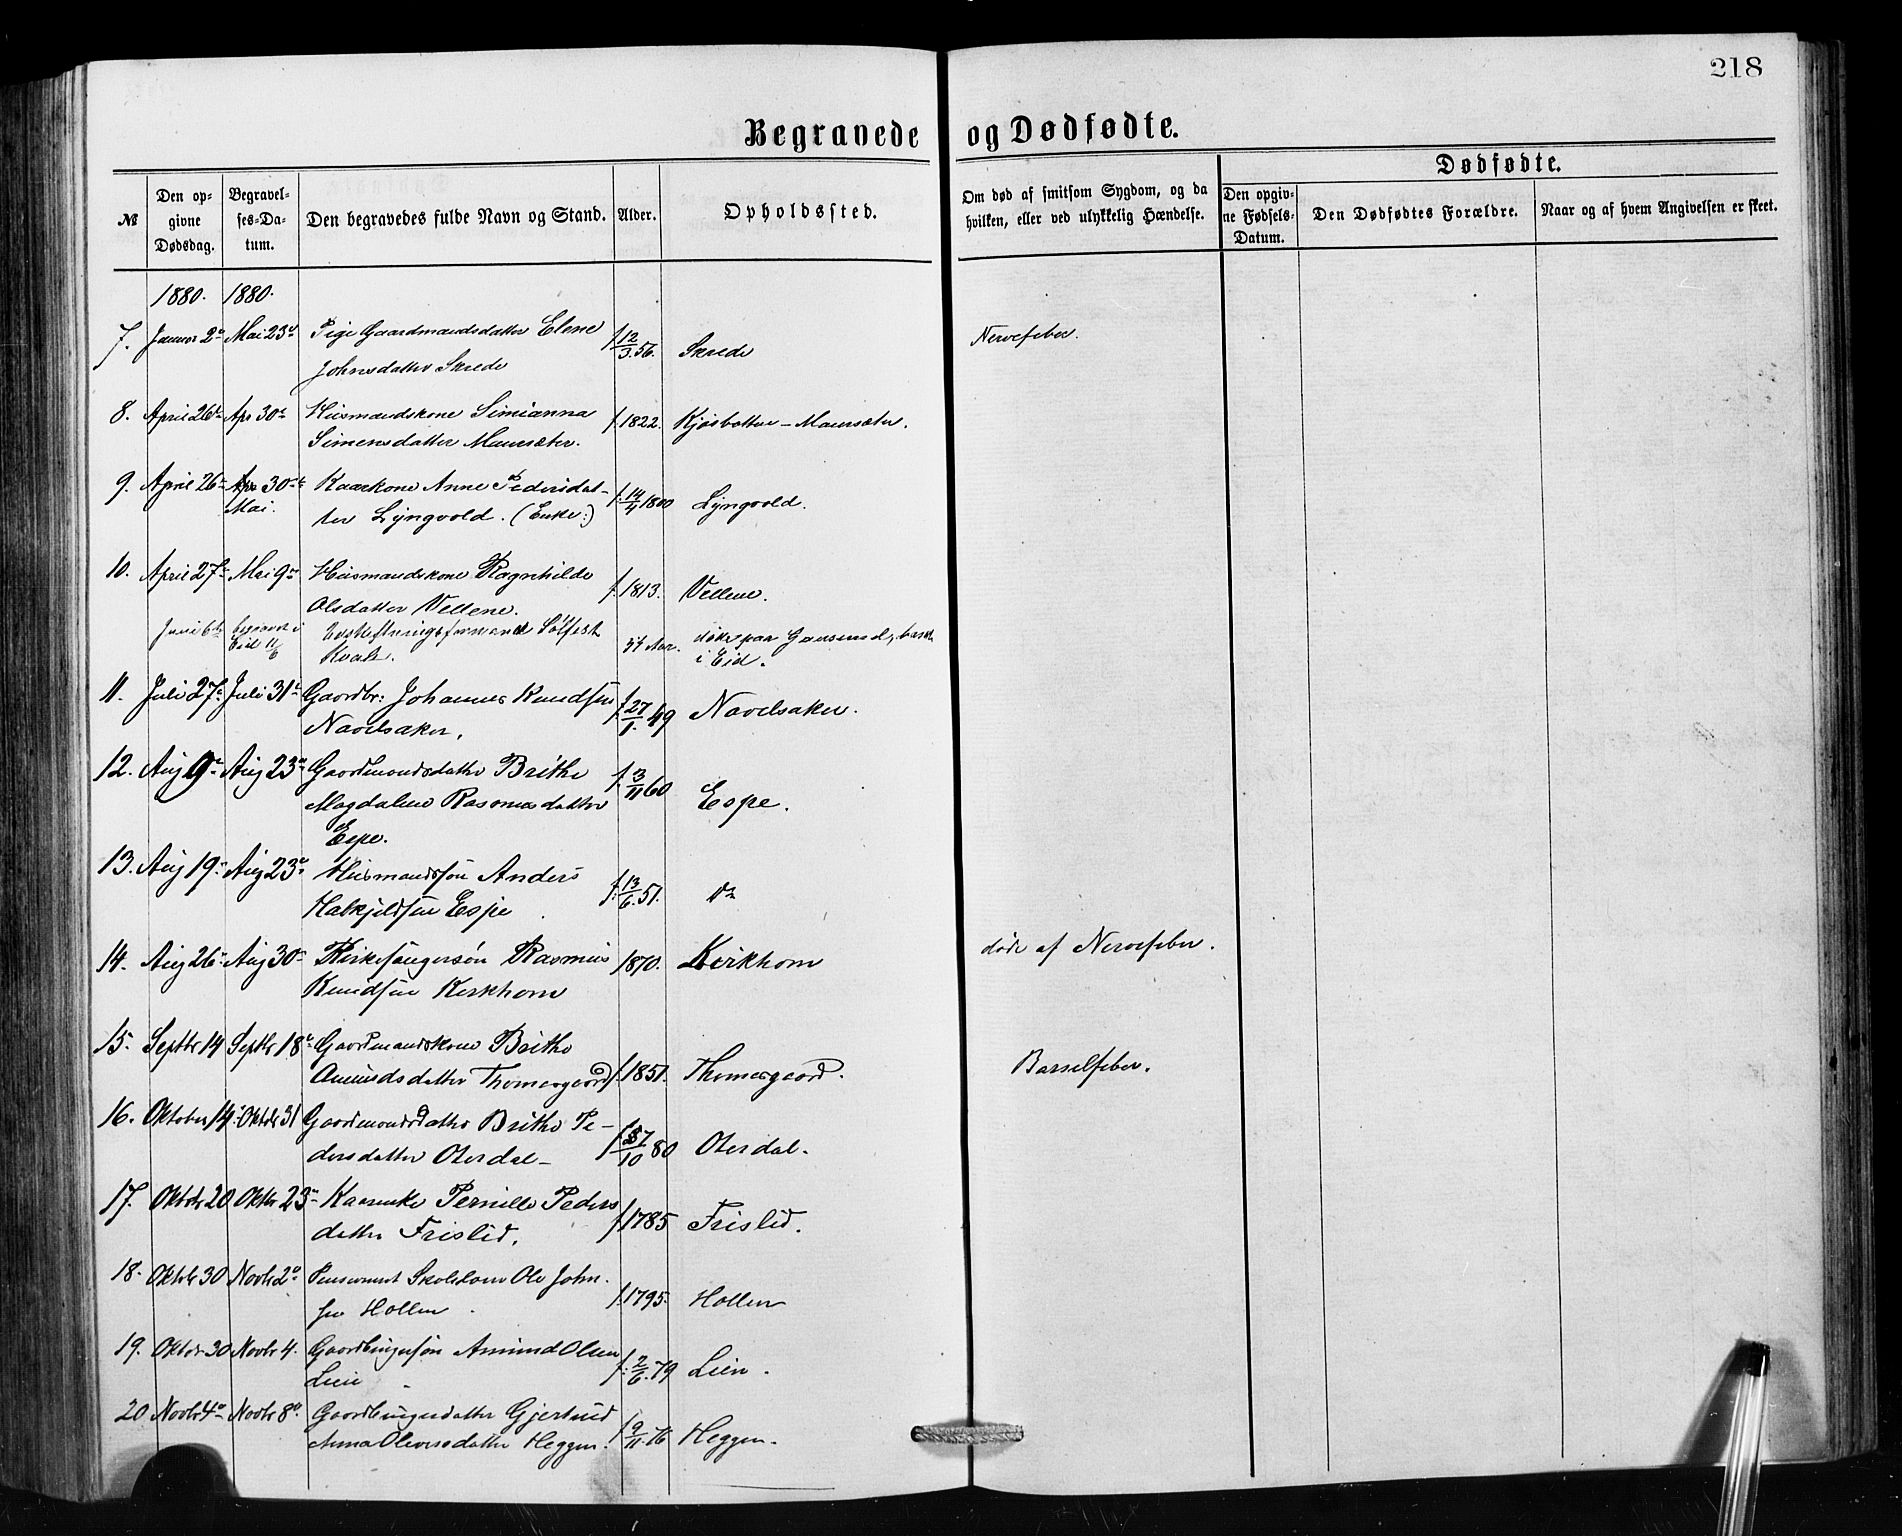 218
Begravede og Dødfødte.
Dødfødte.
№
Den op-
givne
Dødsdag.
Begravel-
ses-Da-
tum.
Den begravedes fulde Navn og Stand.
Alder.
Opholdssted.
Om død af smitsom Sygdom, og da
hvilken, eller ved ulykkelig Hændelse.
Den opgiv-
ne Fødsels-
Datum.
Den Dødfødtes Forældre.
Naar og af hvem Angivelsen er skeet.
1880. 1880.
7. Januar 2den Mai 23de Pige Gaardmandsdatter Elene f. 12/3.56. Skrede Nervefeber.
Johnsdatter Skrede
8. April 26de Apr 30te Huusmandskone Simianna f. 1822. Kjøsbotten - Maursæter.
Simensdatter Maursæter.
9. April 26de Apr 30te Kaarkone Anne Pedersdat- f. 14/4 1800 Lyngvold.
Mai. ter Lyngvold. (Enke:)
10. April 27de Mai 9de Huusmandskone Ragnhilde f. 1813. Vellene.
Olsdatter Vellene.
Juni 6te begravet i Sølfest 34 Aar. døde paa
Eid 11/6 Kvale. i Eid.
11. Juli 27de Juli 31te Gaardbr: Johannes Knudsen f. 27/1.49 Navelsaker.
Navelsaker.
12. Aug 9de Aug 23de Gaardmandsdatter Brithe f. 3/11 60 Espe.
Magdalene Rasmusdatter
Espe.
13. Aug 19de Aug 23de Huusmandssøn Anders f. 13/6.51. do
Habkjeldsen Espe
14. Aug 26de Aug 30te Kirkesangersøn Rasmus 1870. Kirkhorn døde af Nervefeber.
Knudsen Kirkhorn
15. Septbr 14 Septbr 18de Gaardmandskone Brithe f. 1851. Thomasgaard. Barselfeber.
Amundsdatter Thomasgaard
16. Oktober 14. Oktbr 31 Gaardmandsdatter Brithe Pe- f. /10 80 Oterdal.
dersdatter Oterdal
17. Oktbr 20 Oktbr 23de Kaarenke Pernille Peders f. 1785 Frislid.
datter Frislid.
18. Oktbr 30 Novbr 2den Pensioneret Skolelærer Ole John- f. 1795. Hollen
sen Hollen
19. Oktbr 30 Novbr 4. Gaardbrugersøn Amund Olsen f. 2/6.79 Lien.
Lien
20 Novbr 4de Novbr 8de Gaardbrugerdatter Gjertrud f. 9/11.76 Heggen.
Anna Oliversdatter Heggen.